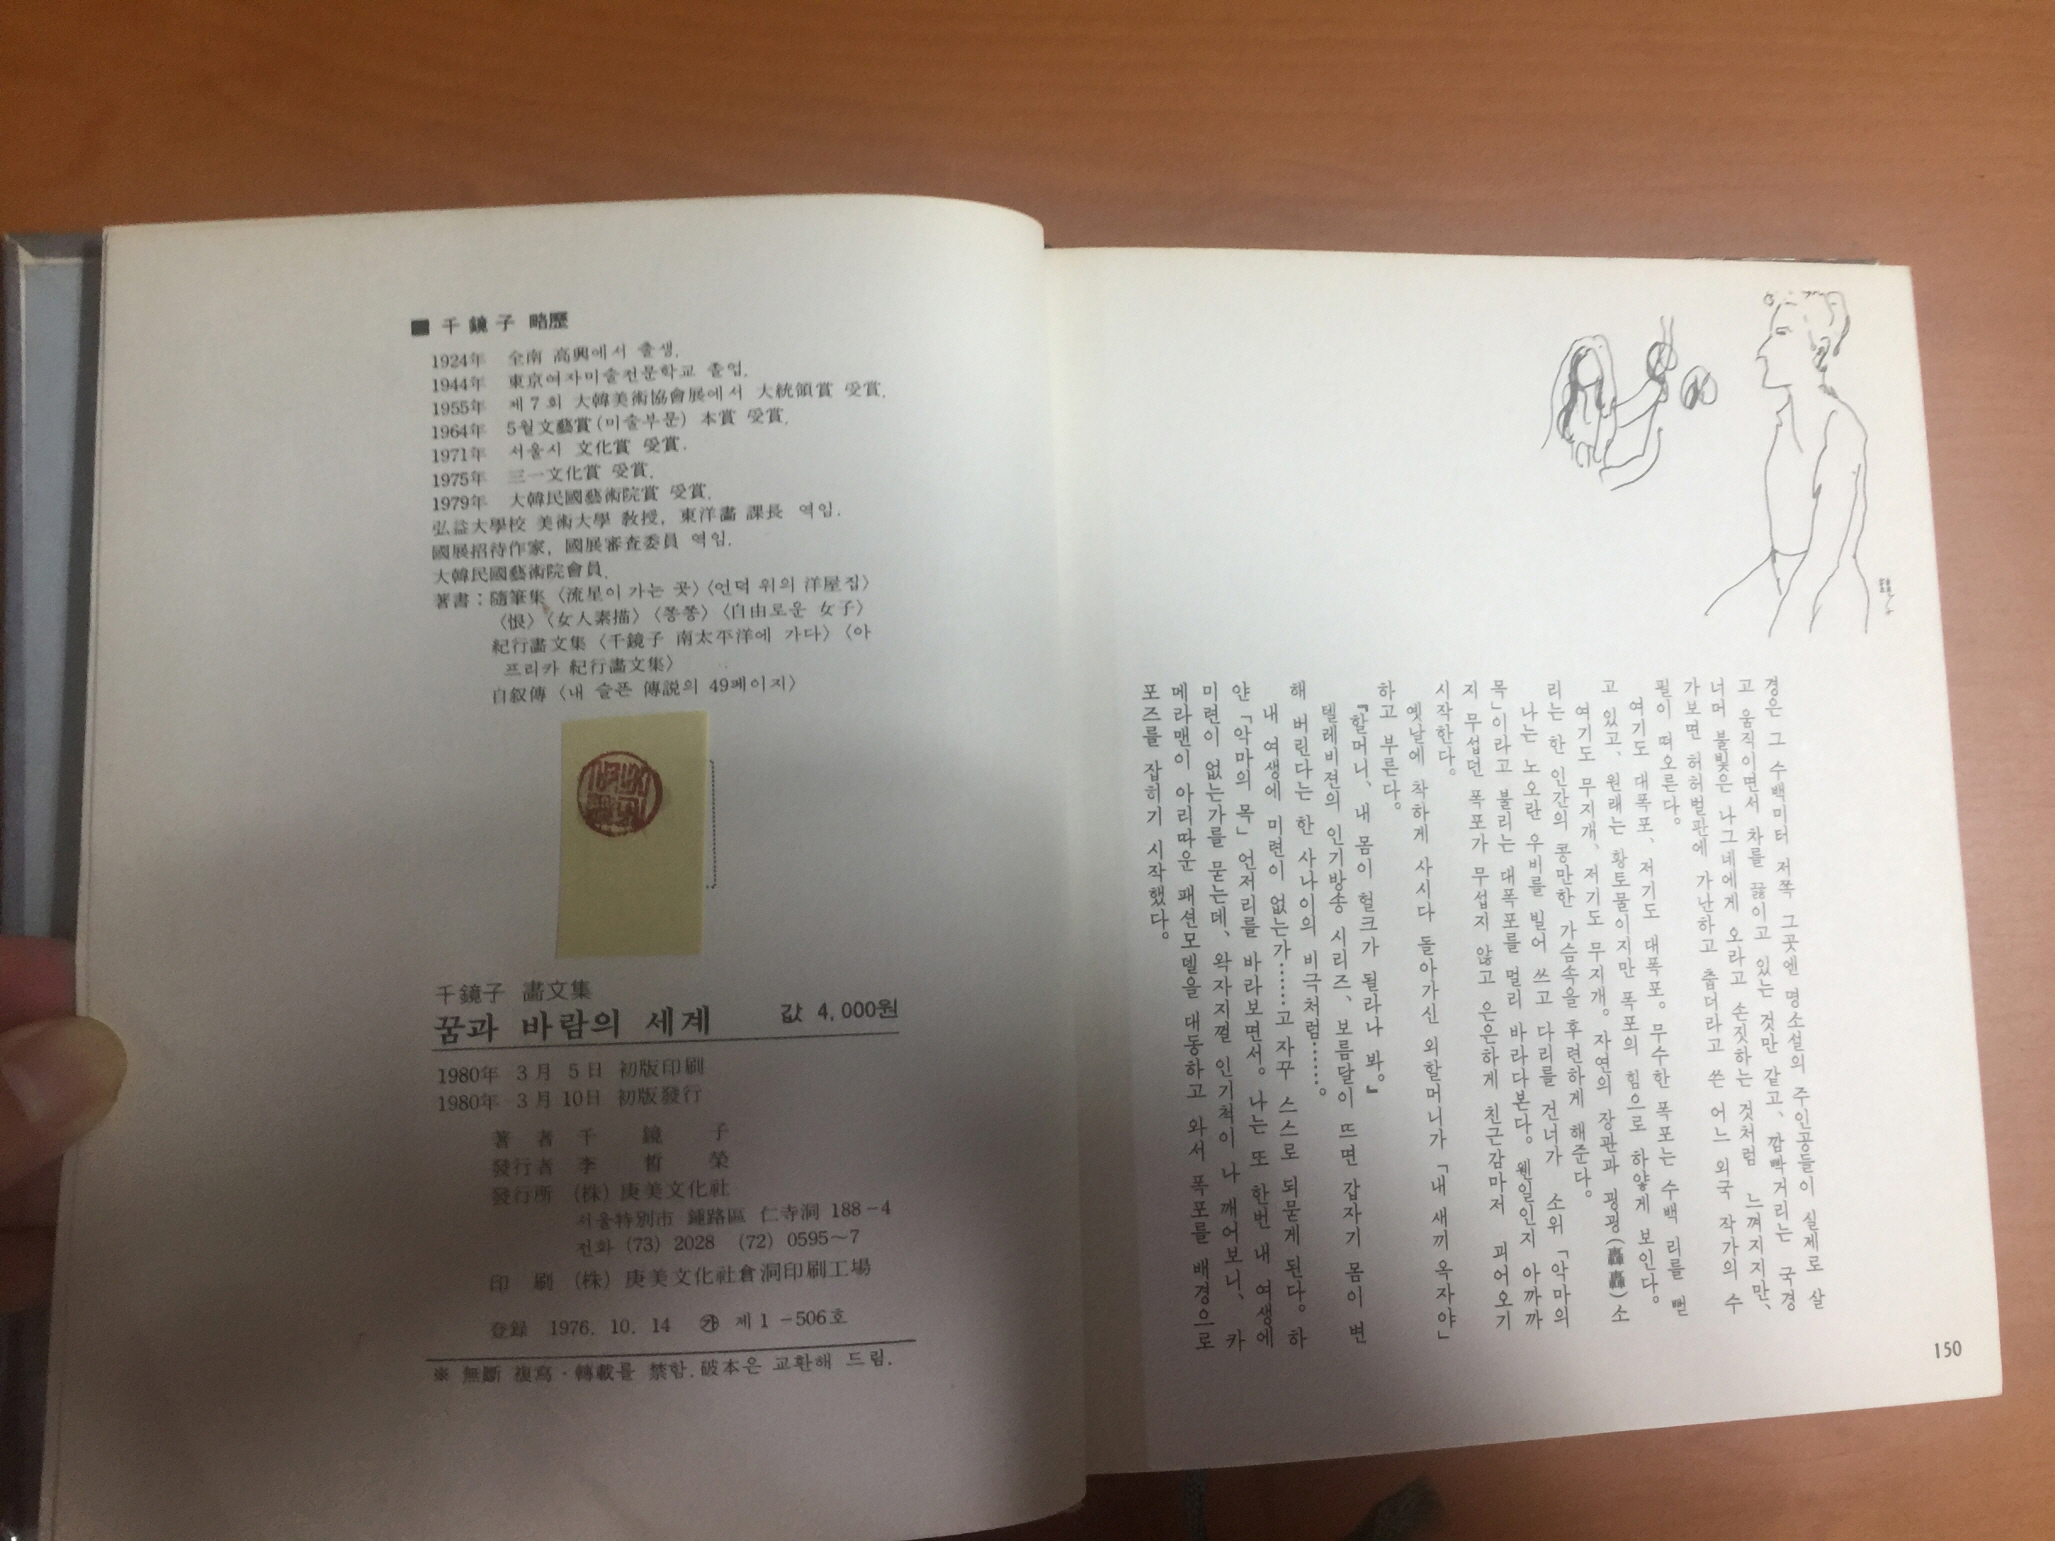 ■ 千鏡子 略歷
1924年 全南 高興에서 출생.
1944年 東京여자미술전문학교 졸업.
1955年 제7회 大韓美術協會展에서 大統領賞 受賞.
1964年 5월文藝賞(미술부문) 本賞 受賞.
1971年 서울시 文化賞 受賞.
1975年 三一文化賞 受賞.
1979年 大韓民國藝術院賞 受賞.
弘益大學校 美術大學 敎授, 東洋畵 課長 역임.
國展招待作家, 國展審査委員 역임.
大韓民國藝術院會員.
著書：隨筆集 〈流星이 가는 곳〉〈언덕 위의 洋屋집〉
〈恨〉〈女人素描〉〈쫑쫑〉〈自由로운 女子〉
紀行畵文集 〈千鏡子 南太平洋에 가다〉〈아
프리카 紀行畵文集〉
自叙傳 〈내 슬픈 傳說의 49페이지〉
千鏡子 畵文集
꿈과 바람의 세계 값 4,000원
1980年 3月 5日 初版印刷
1980年 3月 10日 初版發行
著者 千鏡子
發行者 李晢榮
發行所 (株) 庚美文化社
서울特別市 鍾路區 仁寺洞 188-4
전화 (73) 2028 (72) 0595~7
印刷 (株) 庚美文化社倉洞印刷工場
登録 1976. 10. 14 ㉮ 제1-506호
※ 無斷 複寫·轉載를 禁함. 破本은 교환해 드림.
경은 그 수백미터 저쪽 그곳엔 명소설의 주인공들이 실제로 살
고 움직이면서 차를 끓이고 있는 것만 같고、깜빡거리는 국경
너머 불빛은 나그네에게 오라고 손짓하는 것처럼 느껴지지만、
가보면 허허벌판에 가난하고 춥더라고 쓴 어느 외국 작가의 수
필이 떠오른다。
여기도 대폭포、저기도 대폭포。무수한 폭포는 수백 리를 뻗
고 있고、원래는 황토물이지만 폭포의 힘으로 하얗게 보인다。
여기도 무지개、저기도 무지개。자연의 장관과 굉굉(轟轟)소
리는 한 인간의 콩만한 가슴속을 후련하게 해준다。
나는 노오란 우비를 빌어 쓰고 다리를 건너가 소위「악마의
목」이라고 불리는 대폭포를 멀리 바라다본다。웬일인지 아까까
지 무섭던 폭포가 무섭지 않고 은은하게 친근감마저 피어오기
시작한다。
옛날에 착하게 사시다 돌아가신 외할머니가「내 새끼 옥자야」
하고 부른다。
『할머니、내 몸이 헐크가 될라나 봐。』
텔레비젼의 인기방송 시리즈、보름달이 뜨면 갑자기 몸이 변
해 버린다는 한 사나이의 비극처럼……。
내 여생에 미련이 없는가……고 자꾸 스스로 되묻게 된다。하
얀「악마의 목」언저리를 바라보면서。나는 또 한번 내 여생에
미련이 없는가를 묻는데、왁자지껄 인기척이 나 깨어보니、카
메라맨이 아리따운 패션모델을 대동하고 와서 폭포를 배경으로
포즈를 잡히기 시작했다。
150